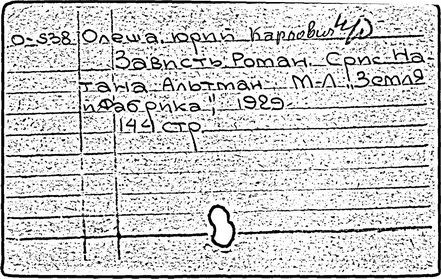 О-538 Олеша Юрий Карлович ч/з
Зависть. Роман. С рис. На-
тана Альтман. М-Л. "Земля
и Фабрика", 1929
144 стр